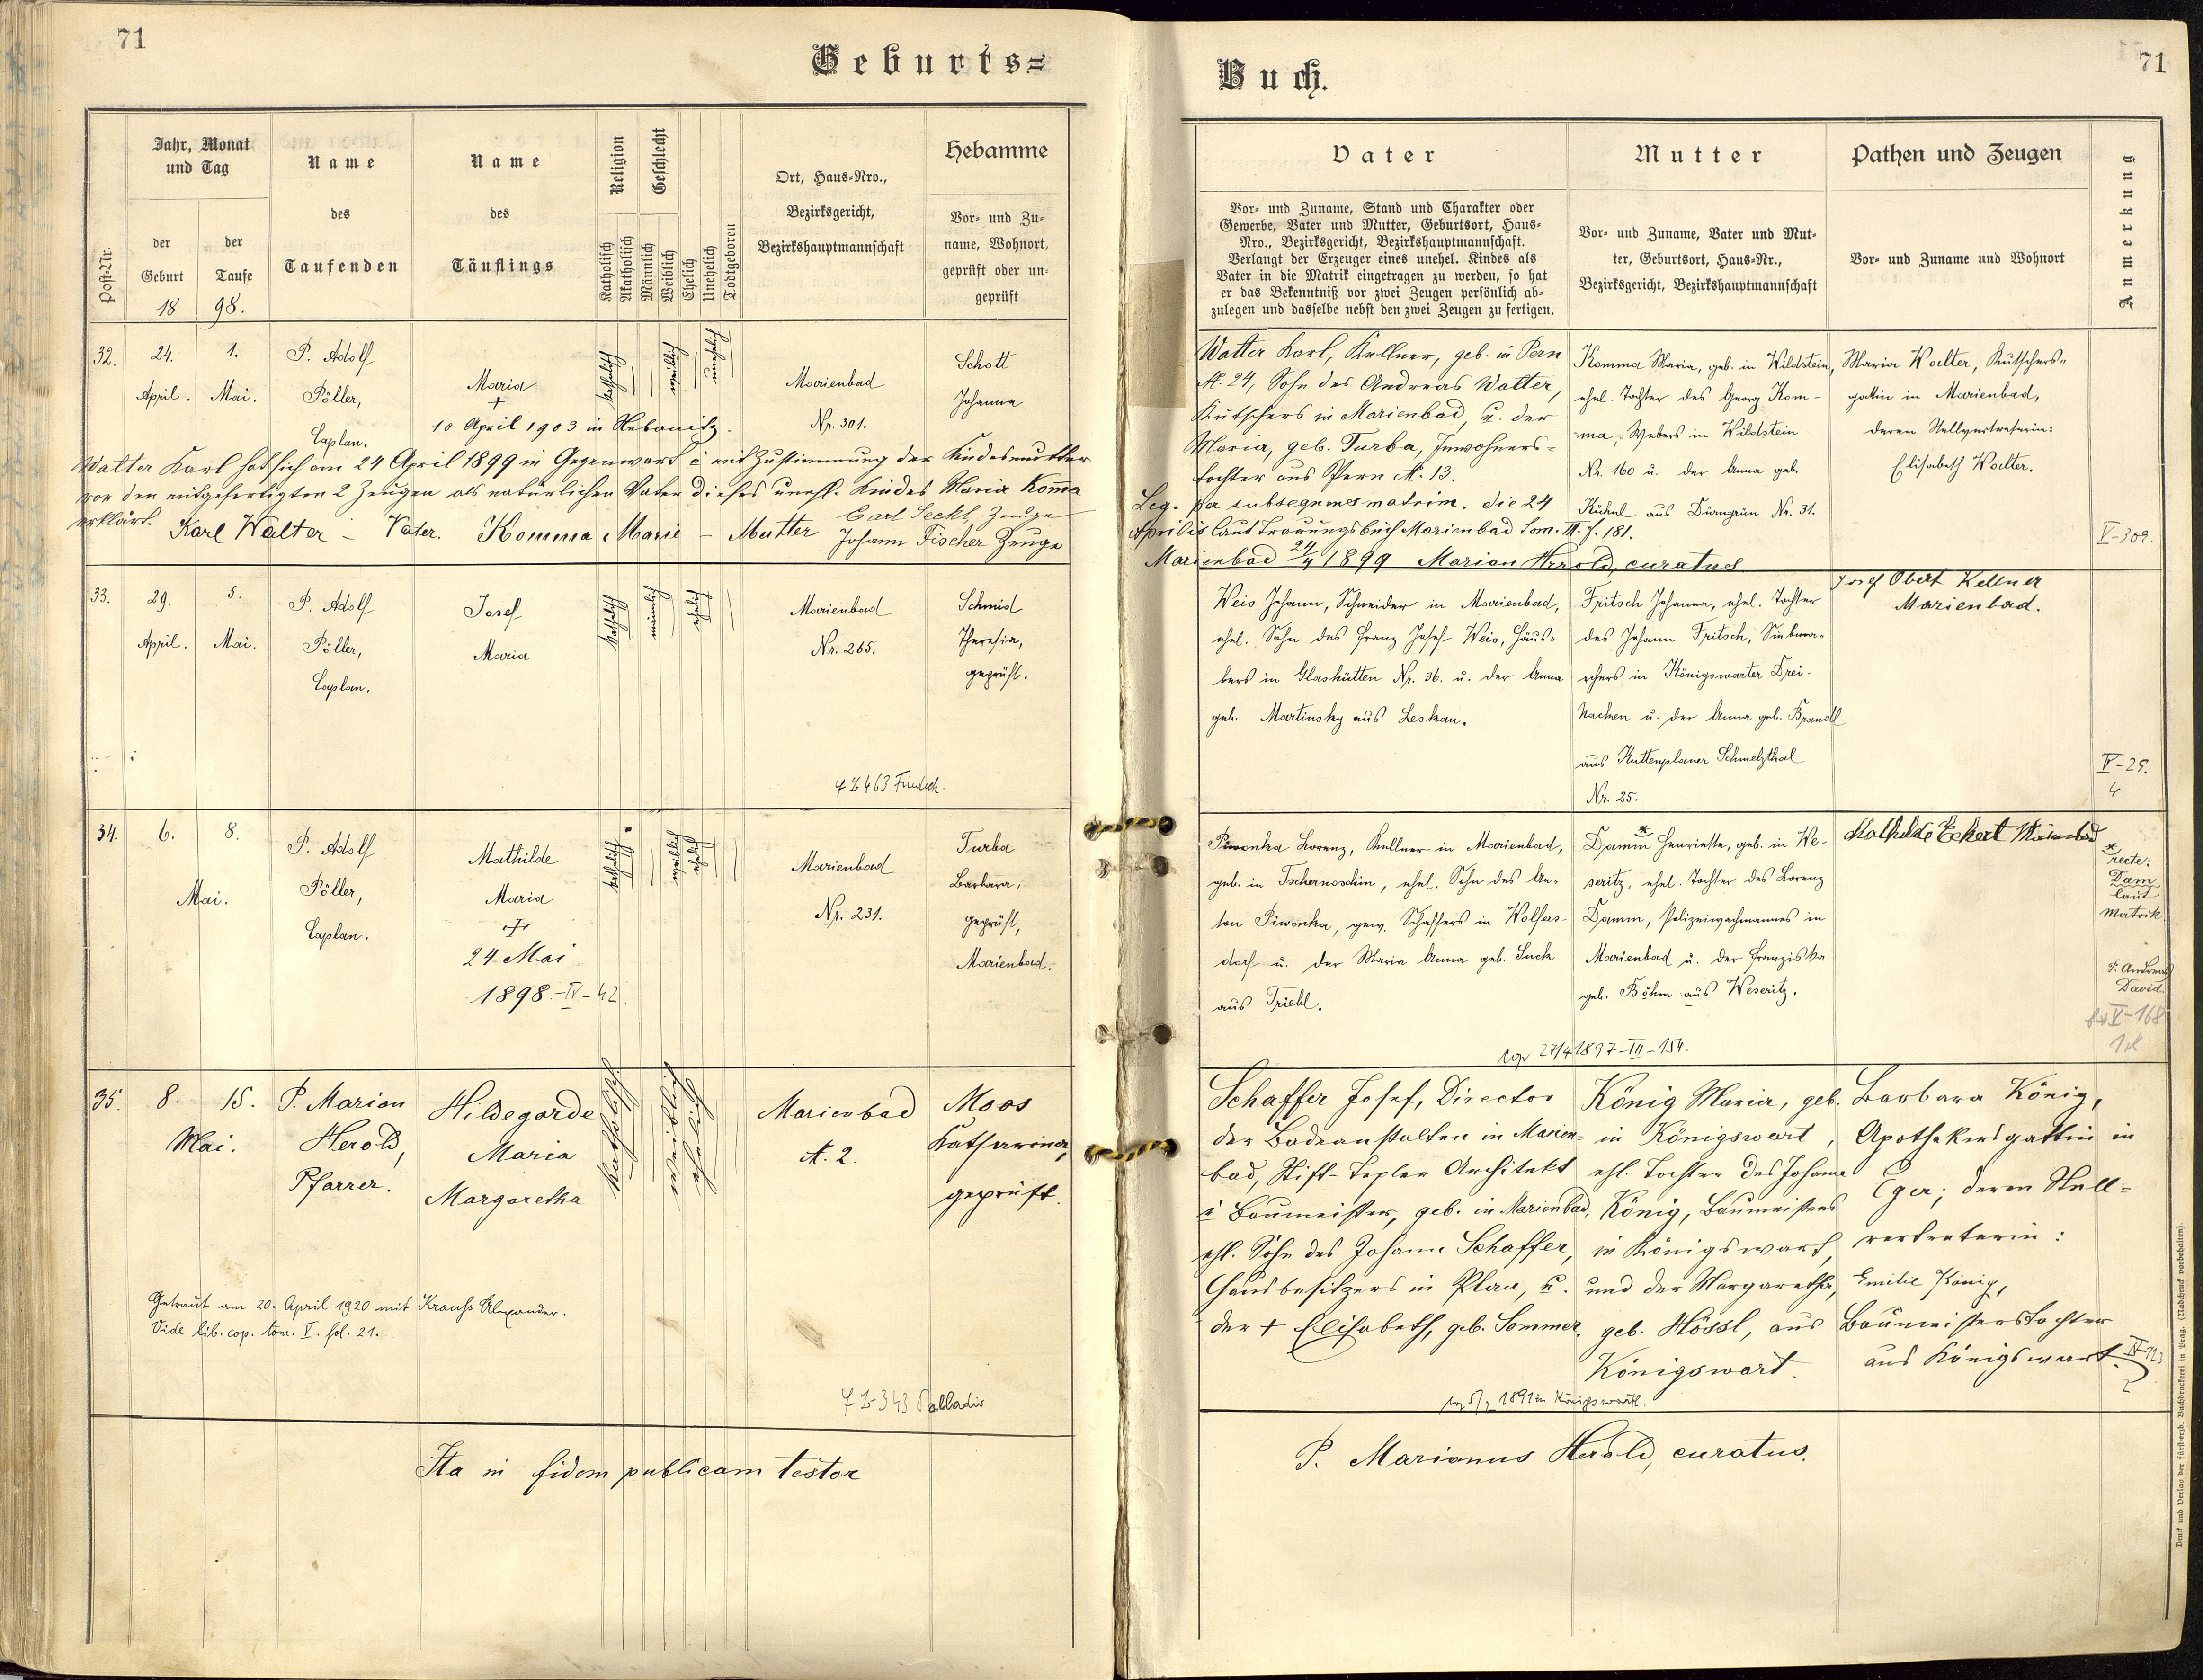 71
Geburts=
Jahr, Monat
und Tag
Name
des
Taufenden
Name
des
Täuflings
Religion
Geschlecht
Ort, Haus-Nro.,
Bezirksgericht,
Bezirkshauptmannschaft
Hebamme
Vor- und Zu-
name, Wohnort,
geprüft oder un-
geprüft
Post-Nr.
der
Geburt
der
Taufe
18 98.
Katholisch
Akatholisch
Männlich
Weiblich
Ehelich
Unehelich
Todtgeboren
32.
24.
April.
1.
Mai.
P. Adolf
Pöller,
Caplan.
Maria
+
10 April 1903 in Nebanitz.
katholisch
weiblich
unehelich
Marienbad
Nr. 301.
Schott
Johanna
Walter Karl hat sich am 24 April 1899 in Gegenwart u mit Zustimmung der Kindesmutter
vor den mitgefertigten 2 Zeugen als natürlichen Vater dieses unehl. Kindes Maria Komma
erklärt.
Karl Walter – Vater. Komma Marie – Mutter
Carl Seckl, Zeuge
Johann Fischer Zeuge
33.
29.
April.
5.
Mai.
P. Adolf
Pöller,
Caplan.
Josef
Maria
katholisch
männlich
ehelich
Marienbad
Nr. 265.
Schmid
Theresia,
geprüft.
34.
6.
8.
Mai.
P. Adolf
Pöller,
Caplan.
Mathilde
Maria
+
24 Mai
1898.-IV-42
katholisch
weiblich
ehelich
Marienbad
Nr. 231.
Turba
Barbara,
geprüft,
Marienbad.
35.
8.
15.
Mai.
P. Marian
Herold,
Pfarrer.
Hildegarde
Maria
Margaretha
katholisch
weiblich
ehelich
Marienbad
N. 2.
Moos
Katharina,
geprüft.
Getraut am 20. April 1920 mit Krauss Alexander.
Vide lib. cop. tom. V. fol. 21.
Ita in fidem publicam testor
Buch.
71
Vater
Vor- und Zuname, Stand und Charakter oder
Gewerbe, Vater und Mutter, Geburtsort, Haus-
Nro., Bezirksgericht, Bezirkshauptmannschaft.
Verlangt der Erzeuger eines unehel. Kindes als
Vater in die Matrik eingetragen zu werden, so hat
er das Bekenntniß vor zwei Zeugen persönlich ab-
zulegen und dasselbe nebst den zwei Zeugen zu fertigen.
Mutter
Vor- und Zuname, Vater und Mut-
ter, Geburtsort, Haus-Nr.,
Bezirksgericht, Bezirkshauptmannschaft
Pathen und Zeugen
Vor- und Zuname und Wohnort
Anmerkung
Walter Karl, Kellner, geb. in Pern
N. 24, Sohn des Andreas Walter,
Kutschers in Marienbad, u. der
Maria, geb. Turba, Inwohners-
tochter aus Pern N. 13.
Leg. per subsequens matrim. die 24
Aprilis laut Trauungsbuch Marienbad Tom. III. f. 181.
Marienbad 24/4 1899 Marian Herold, curatus
Komma Maria, geb. in Wildstein,
ehel. Tochter des Georg Kom-
ma, Webers in Wildstein
Nr. 160 u. der Anna geb.
Kühnl aus Dürngrün Nr. 31.
Maria Walter, Kutschers-
gattin in Marienbad,
deren Stellvertreterin:
Elisabeth Walter.
V-302.
Weis Johann, Schneider in Marienbad,
ehel. Sohn des Franz Josef Weis, Häus-
lers in Glashütten Nr. 36. u. der Anna
geb. Martinsky aus Leskau.
Fritsch Johanna, ehel. Tochter
des Johann Fritsch,
in Königswarter Drei-
hacken u. der Anna geb. Brandl
aus Kuttenplaner Schmelzthal
Nr. 25.
Josef Obert Kellner
Marienbad.
Piwonka Lorenz, Kellner in Marienbad,
geb. in Tschernoschin, ehel. Sohn des An-
ton Piwonka, gew. Schaffers in Wolfers-
dorf u. der Maria Anna geb. Such
aus Triebl.
Damm Henriette, geb. in We-
seritz, ehel. Tochter des Lorenz
Damm, Polizeiwachmannes in
Marienbad u. der Franziska
geb. Böhm aus Weseritz.
cop 27/4 1897-III-154.
Mathilde Eckert Marienbad
* recte:
Dam
laut
Matrik
P. Andreas
David.
Schaffer Josef, Director
der Badeanstalten in Marien-
bad, Stift-Tepler Architekt
u Baumeister, geb. in Marienbad,
ehl. Sohn des Johann Schaffer,
Hausbesitzers in Plan, u.
der + Elisabeth, geb. Sommer.
König Maria, geb.
in Königswart,
ehl. Tochter des Johann
König, Baumeisters
in Königswart,
und der Margaretha,
geb. Hössl, aus
Königswart.
Barbara König,
Apothekersgattin in
Eger; deren Stell-
vertreterin:
Emilie König,
Baumeisterstochter
aus Königswart.
P. Marianus Herold, curatus.
Druck und Verlag der fürsterzb. Buchdruckerei in Prag. (Nachdruck vorbehalten).